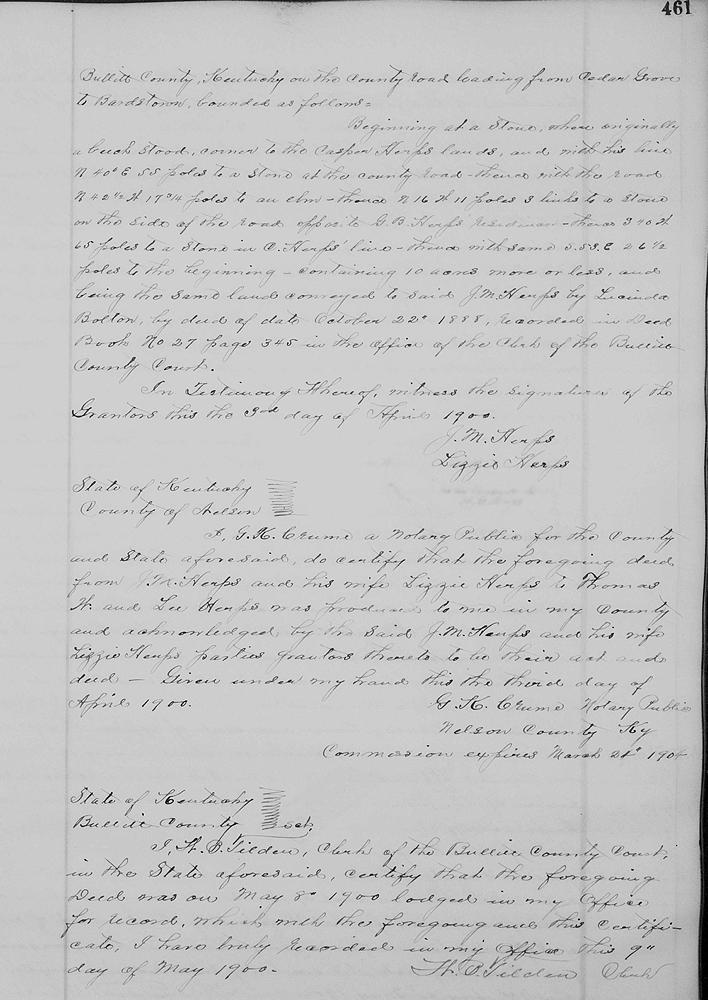 461
Bullitt County, Kentucky on the County road leading from Cedar Grove
to Bardstown, bounded as follows=
Beginning at a Stone, where originally
a beech stood, corner to the Casper Herps lands, and with his line
N 40° E 55 poles to a stone at the county road - thence with the road
N 42 1/2 W 17 3/4 poles to an elm - thence N 16 W 11 poles 3 links to a stone
on the side of the road opposite G.B. Herps' residence - thence S 40 W
65 poles to a stone in C. Herps' line - thence with same S.53.E 26 1/2
poles to the beginning - containing 10 acres more or less, and
being the same land conveyed to said J.M. Herps by Lucinda
Bolton, by deed of date October 22d 1888, recorded in Deed
Book No 27 page 345 in the office of the Clerk of the Bullitt
County Court.
In Testimony Whereof, witness the signatures of the
Grantors this the 3rd day of April 1900.
J.M. Herps
Lizzie Herps
State of Kentucky
County of Nelson
I, G.K. Crume a Notary Public for the County
and State aforesaid, do certify that the foregoing deed
from J.M. Herps and his wife Lizzie Herps to Thomas
W. and Lee Herps was produced to me in my County
and acknowledged by the said J.M. Herps and his wife
Lizzie Herps parties grantors thereto to be their act and
deed - Given under my hand this the third day of
April 1900. G.K. Crume Notary Public
Nelson County Ky
Commission expires March 24" 1904
State of Kentucky
Bullitt County Sct,
I, W.B. Tilden, Clerk of the Bullitt County Court,
in the State aforesaid, certify that the foregoing
Deed was on May 8" 1900 lodged in my Office
for record, which with the foregoing and this certifi-
cate, I have truly recorded in my Office this 9"
day of May 1900- W.B. Tilden Clerk